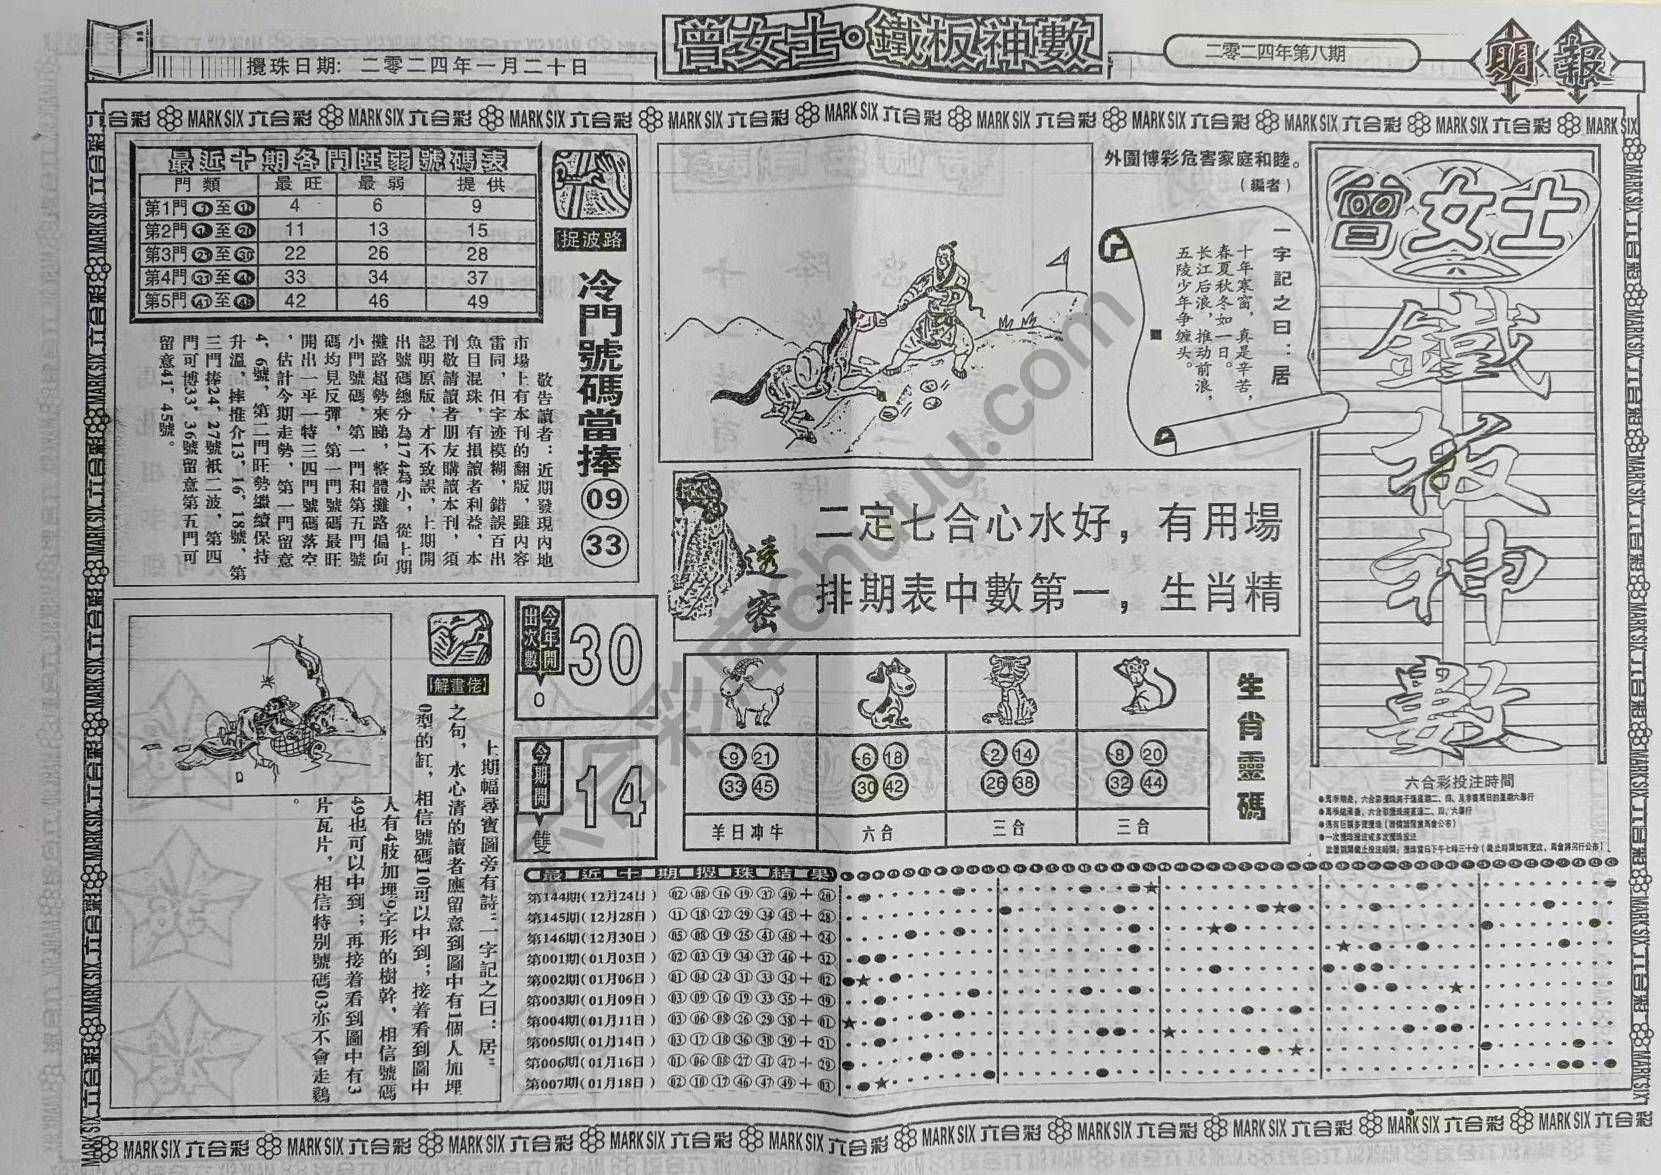 攪珠日期: 二零二四年一月二十日
曾女士·鐵板神數
二零二四年第八期
明報
六合彩 MARK SIX 六合彩 MARK SIX 六合彩 MARK SIX 六合彩 MARK SIX 六合彩 MARK SIX 六合彩 MARK SIX 六合彩 MARK SIX 六合彩 MARK SIX 六合彩 MARK SIX 六合彩 MARK SIX
最近十期各門旺弱號碼表
門類 最旺 最弱 提供
第1門 至 4 6 9
第2門 至 11 13 15
第3門 至 22 26 28
第4門 至 33 34 37
第5門 至 42 46 49
捉波路
冷門號碼當捧
09
33
敬告讀者：近期發現內地
市場上有本刊的翻版，雖內容
雷同，但字迹模糊，錯誤百出
魚目混珠，有損讀者利益，本
刊敬請讀者朋友購讀本刊，須
認明原版，才不致誤，上期開
出號碼總分為174為小，從上期
攤路超勢來睇，整體攤路偏向
小門號碼，第一門和第五門號
碼均見反彈，第一門號碼最旺
開出一平一特三四門號碼落空
，估計今期走勢，第一門留意
4，6號，第二門旺勢繼續保持
升溫，摔推介13，16，18號，第
三門捧24，27號衹二波，第四
門可博33，36號留意第五門可
留意41，45號。
外圍博彩危害家庭和睦。
(編者)
一字記之曰：居
十年寒窗，真是辛苦，
春夏秋冬如一日。
长江后浪，推动前浪，
五陵少年争缠头。
曾女士
鐵板神數
透密
二定七合心水好，有用場
排期表中數第一，生肖精
解畫佬
上期幅尋寶圖旁有詩：一字記之曰：居"
之句，水心清的讀者應留意到圖中有1個人加埋
0型的缸，相信號碼10可以中到；接着看到圖中
人有4肢加埋9字形的樹幹，相信號碼
49也可以中到；再接着看到圖中有3
片瓦片，相信特別號碼03亦不會走鷄
。
今年開出次數
0
30
今期開
雙
14
生肖靈碼
9 21
33 45
羊日冲牛
6 18
30 42
六合
2 14
26 38
三合
8 20
32 44
三合
六合彩投注時間
最近十期攪珠結果
第144期(12月24日) 02 08 16 19 37 49 + 20
第145期(12月28日) 11 18 27 29 34 45 + 28
第146期(12月30日) 05 08 19 25 41 48 + 24
第001期(01月03日) 02 03 19 34 37 46 + 32
第002期(01月06日) 01 04 24 31 33 34 + 02
第003期(01月09日) 03 09 16 19 33 35 + 39
第004期(01月11日) 03 06 08 26 29 38 + 01
第005期(01月14日) 03 17 18 36 38 39 + 21
第006期(01月16日) 01 06 08 27 41 47 + 29
第007期(01月18日) 02 10 17 46 47 49 + 03
MARK SIX 六合彩 MARK SIX 六合彩 MARK SIX 六合彩 MARK SIX 六合彩 MARK SIX 六合彩 MARK SIX 六合彩 MARK SIX 六合彩 MARK SIX 六合彩 MARK SIX 六合彩 MARK SIX 六合彩
六合彩库ohuuu.com